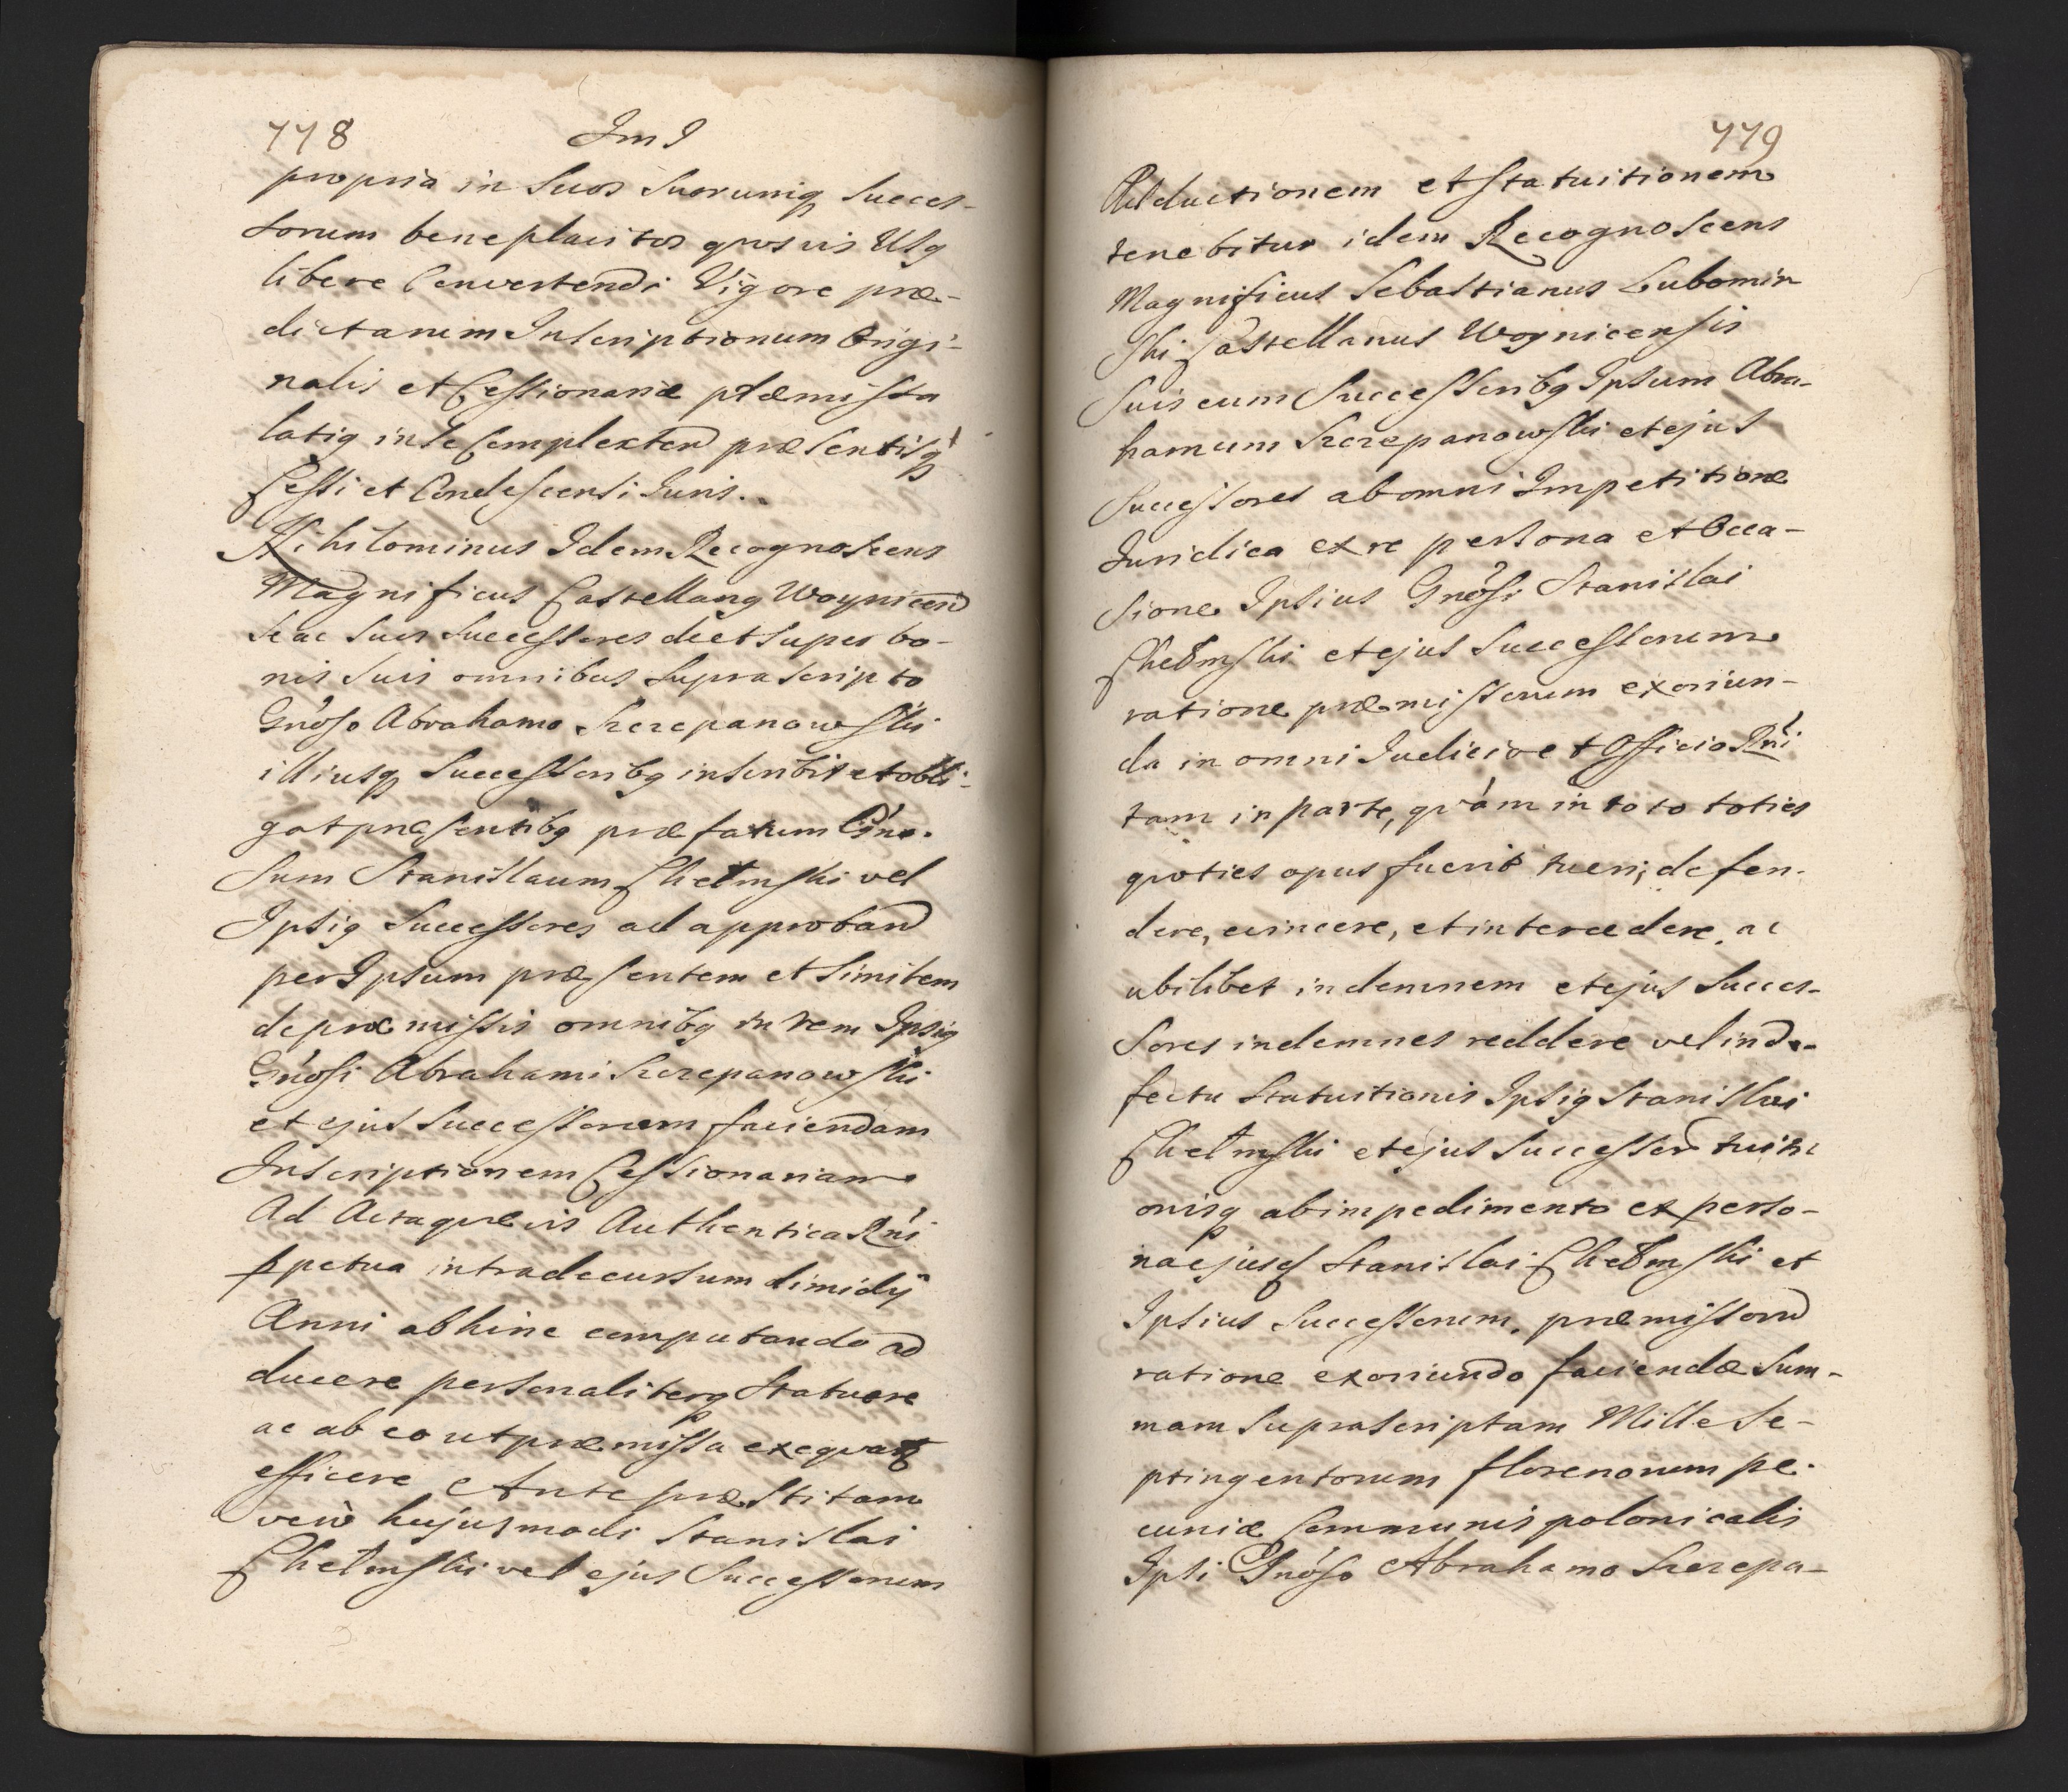 778 Im I
propria in Suos Suorumq Succes-
sorum beneplacitos quosvis Usq
libere Convertendi Vigore præ-
dictarum Inscriptionum Origi-
nalis et Cessionariæ præmissa
latiq in se Complexten præsentisq
Cessi et Condescensi Juris.
Nihilominus Idem Recognoscens
Magnificus Castellanq Woynicen
se ac Suos Successores de et super bo-
nis Suis omnibus Suprascripto
Gnoso Abrahamo Szczepanowski
illiusq Successoribq inscribit et obli-
gat præsentibq præfatum Gno-
sum Stanislaum Chełmski vel
Ipsiq Successores ad approband
per Ipsum præsentem et Similem
de præmissis omnibq in rem Ipsiq
Gnosi Abrahami Szczepanowski
et ejus Successorum faciendam
Inscriptionem Cessionariam
Ad Acta quævis Authentica Rni
ppetua intra decursum dimidij
Anni abhinc computando ad
ducere personaliterq Statuere
ac ab eo ut præmissa exequatq
efficere Ante præstitam
verò hujusmodi Stanislai
Chełmski vel ejus Successorum
779
Adductionem et Statuitionem
tenebitur idem Recognoscens
Magnificus Sebastianus Lubomir
ski Castellanus Woynicensis
Suis cum Successoribq Ipsum Abra-
hamum Szczepanowski et ejus
Successores ab omni Impetitione
Juridica ex re persona et Occa-
sione Ipsius Gnosi Stanislai
Chełmski et ejus Successorum
ratione præmissorum exoriun-
da in omni Judicio et Officio Rni
tam in parte, quàm in toto toties
quoties opus fuerit tueri, defen-
dere, evincere, et intercedere, ac
ubilibet indemnem et ejus Succes-
sores indemnes reddere vel in de-
fectu Statuitionis Ipsiq Stanislai
Chełmski et ejus Successor tuiti
onisq ab impedimento ex perso-
na ejusd Stanislai Chełmski et
Ipsius Successorum, præmissoru
ratione exoriundo faciendæ Sum-
mam Suprascriptam Mille Se-
ptingentorum florenorum pe-
cuniæ Communis polonicalis
Ipsi Gnoso Abrahamo Szczepa-